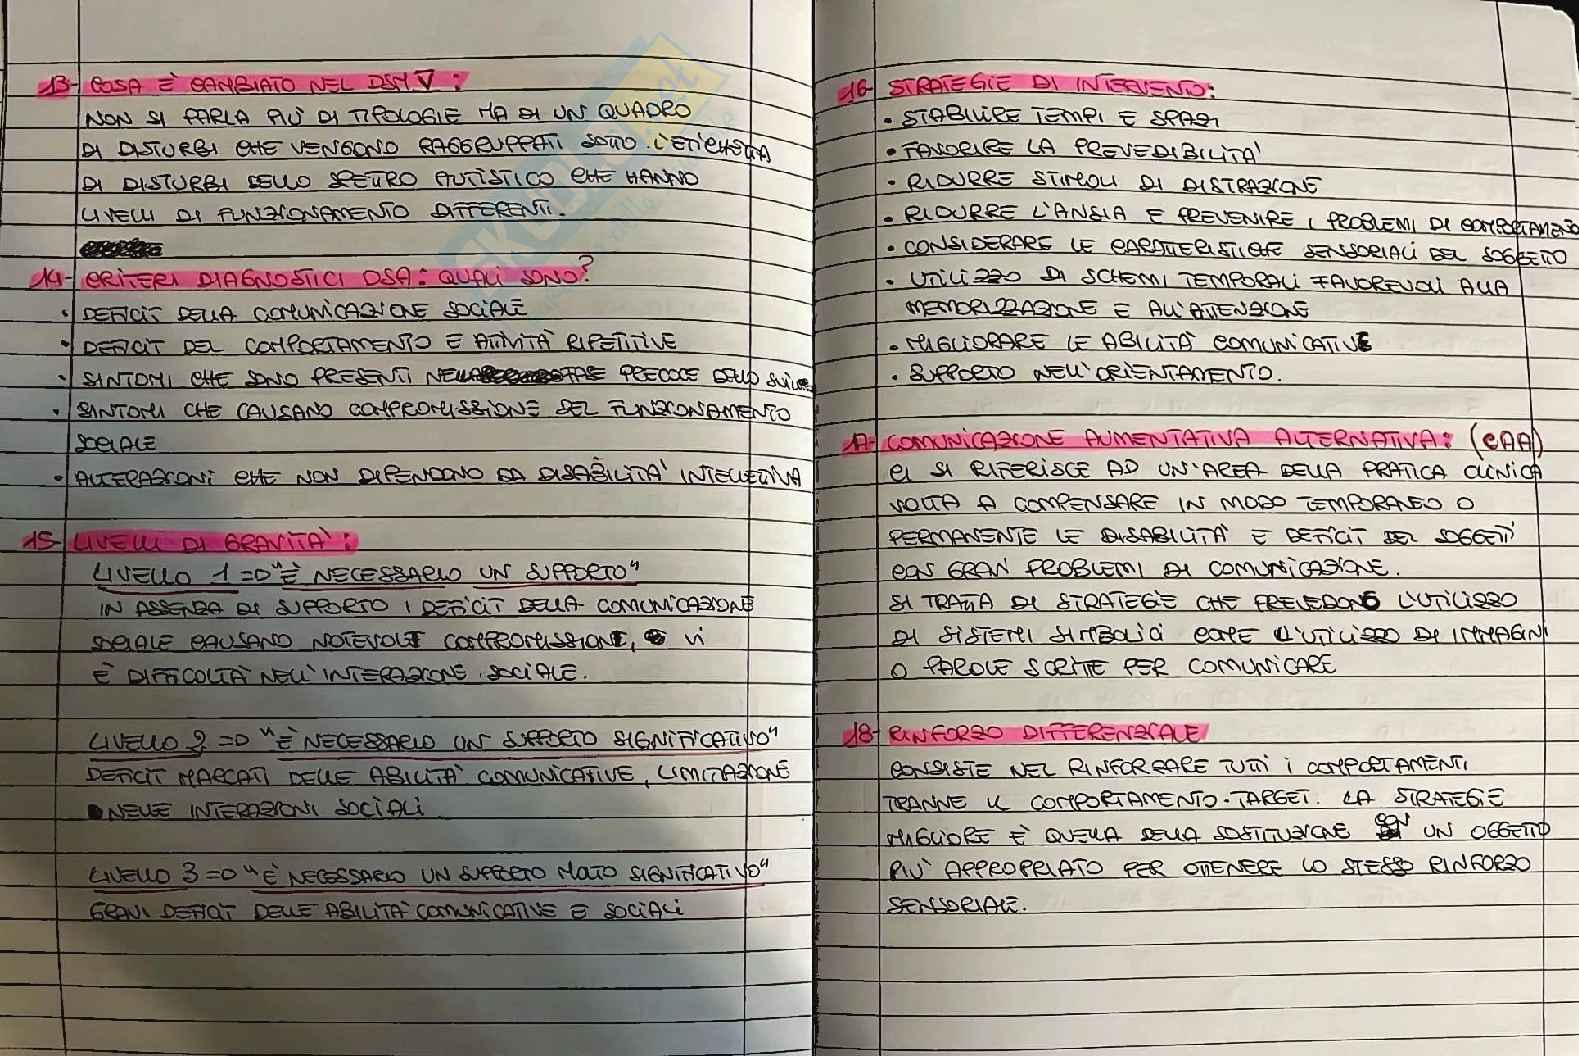 13- COSA È CAMBIATO NEL DSM V:
NON SI PARLA PIÙ DI TIPOLOGIE MA DI UN QUADRO
DI DISTURBI CHE VENGONO RAGGRUPPATI SOTTO L'ETICHETTA
DI DISTURBI DELLO SPETTRO AUTISTICO CHE HANNO
LIVELLI DI FUNZIONAMENTO DIFFERENTI.
14- CRITERI DIAGNOSTICI DSA: QUALI SONO?
• DEFICIT DELLA COMUNICAZIONE SOCIALE
• DEFICIT DEL COMPORTAMENTO E ATTIVITÀ RIPETITIVE
• SINTOMI CHE SONO PRESENTI PRECOCE DELLO
• SINTOMI CHE CAUSANO COMPROMISSIONE DEL FUNZIONAMENTO
SOCIALE
• ALTERAZIONI CHE NON DIPENDONO DA DISABILITÀ INTELLETTIVA
15- LIVELLI DI GRAVITÀ:
LIVELLO 1 => "È NECESSARIO UN SUPPORTO"
IN ASSENZA DI SUPPORTO I DEFICIT DELLA COMUNICAZIONE
SOCIALE CAUSANO NOTEVOLI COMPROMISSIONI, VI
È DIFFICOLTÀ NELL'INTERAZIONE SOCIALE.
LIVELLO 2 => "È NECESSARIO UN SUPPORTO SIGNIFICATIVO"
DEFICIT MARCATI DELLE ABILITÀ COMUNICATIVE, LIMITAZIONE
NELLE INTERAZIONI SOCIALI
LIVELLO 3 => "È NECESSARIO UN SUPPORTO MOLTO SIGNIFICATIVO"
GRAVI DEFICIT DELLE ABILITÀ COMUNICATIVE E SOCIALI
16- STRATEGIE DI INTERVENTO:
• STABILIRE TEMPI E SPAZI
• FAVORIRE LA PREVEDIBILITÀ
• RIDURRE STIMOLI DI DISTRAZIONE
• RIDURRE L'ANSIA E PREVENIRE I PROBLEMI DI COMPORTAMENTO
• CONSIDERARE LE CARATTERISTICHE SENSORIALI DEL SOGGETTO
• UTILIZZO DI SCHEMI TEMPORALI FAVOREVOLI ALLA
MEMORIZZAZIONE E ALL'ATTENZIONE
• MIGLIORARE LE ABILITÀ COMUNICATIVE
• SUPPORTO NELL'ORIENTAMENTO.
17- COMUNICAZIONE AUMENTATIVA ALTERNATIVA: (CAA)
CI SI RIFERISCE AD UN'AREA DELLA PRATICA CLINICA
VOLTA A COMPENSARE IN MODO TEMPORANEO O
PERMANENTE LE DISABILITÀ E DEFICIT DEL SOGGETTI
CON GRAVI PROBLEMI DI COMUNICAZIONE.
SI TRATTA DI STRATEGIE CHE PREVEDONO L'UTILIZZO
DI SISTEMI SIMBOLICI COME L'UTILIZZO DI IMMAGINI
O PAROLE SCRITTE PER COMUNICARE
18- RINFORZO DIFFERENZIALE
CONSISTE NEL RINFORZARE TUTTI I COMPORTAMENTI
TRANNE IL COMPORTAMENTO-TARGET. LA STRATEGIE
MIGLIORE È QUELLA DELLA SOSTITUZIONE CON UN OGGETTO
PIÙ APPROPRIATO PER OTTENERE LO STESSO RINFORZO
SENSORIALE.